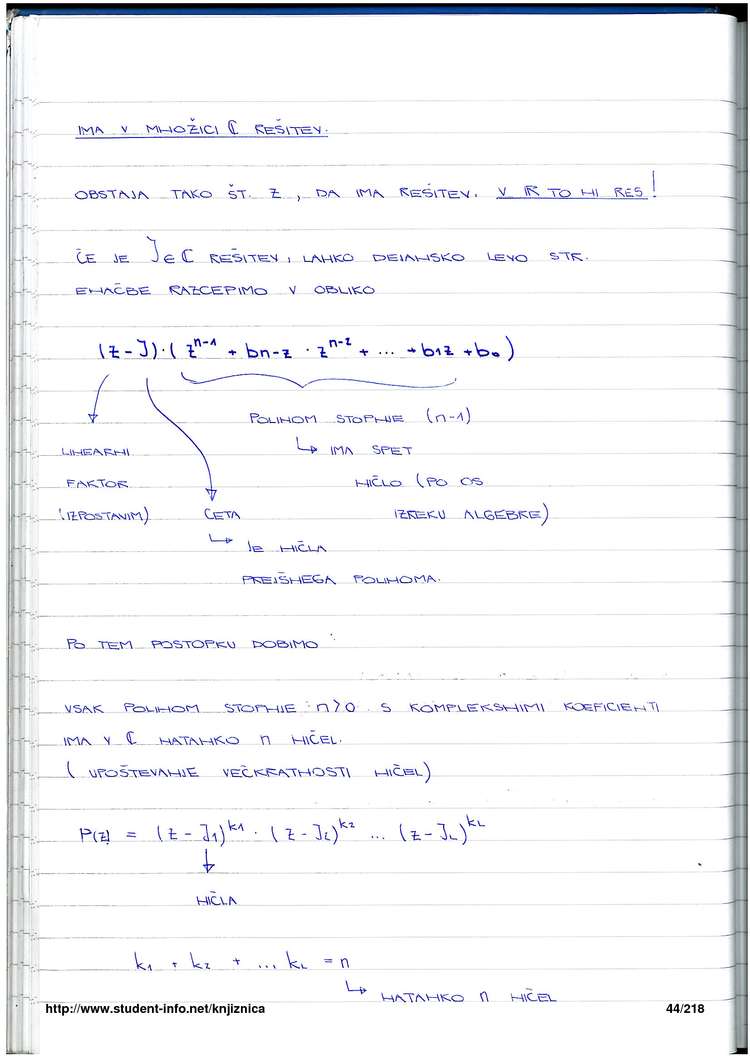 IMA V MNOŽICI ℂ REŠITEV.
OBSTAJA TAKO ŠT. Z, DA IMA REŠITEV. V ℝ TO NI RES!
ČE JE ζ ∈ ℂ REŠITEV, LAHKO DEJANSKO LEVO STR.
ENAČBE RAZCEPIMO V OBLIKO
(z - ζ) · (z^{n-1} + b_{n-2} · z^{n-2} + ... + b_1 z + b_0)
POLINOM STOPNJE (n-1)
↳ IMA SPET
NIČLO (PO OS
IZREKU ALGEBRE)
LINEARNI
FAKTOR
(IZPOSTAVIM)
ČETA
↳ JE NIČLA
PREJŠNEGA POLINOMA.
PO TEM POSTOPKU DOBIMO:
VSAK POLINOM STOPNJE n>0 S KOMPLEKSNIMI KOEFICIENTI
IMA V ℂ NATANKO n NIČEL.
(UPOŠTEVANJE VEČKRATNOSTI NIČEL)
P(z) = (z - ζ_1)^{k_1} · (z - ζ_2)^{k_2} ... (z - ζ_L)^{k_L}
↓
NIČLA
k_1 + k_2 + ... k_L = n
↳ NATANKO n NIČEL
http://www.student-info.net/knjiznica 44/218